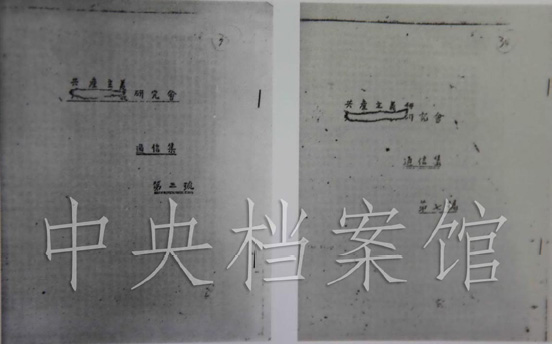 共產主義
研究會
通信集
第二號
共產主義
研究會
通信集
中央档案馆